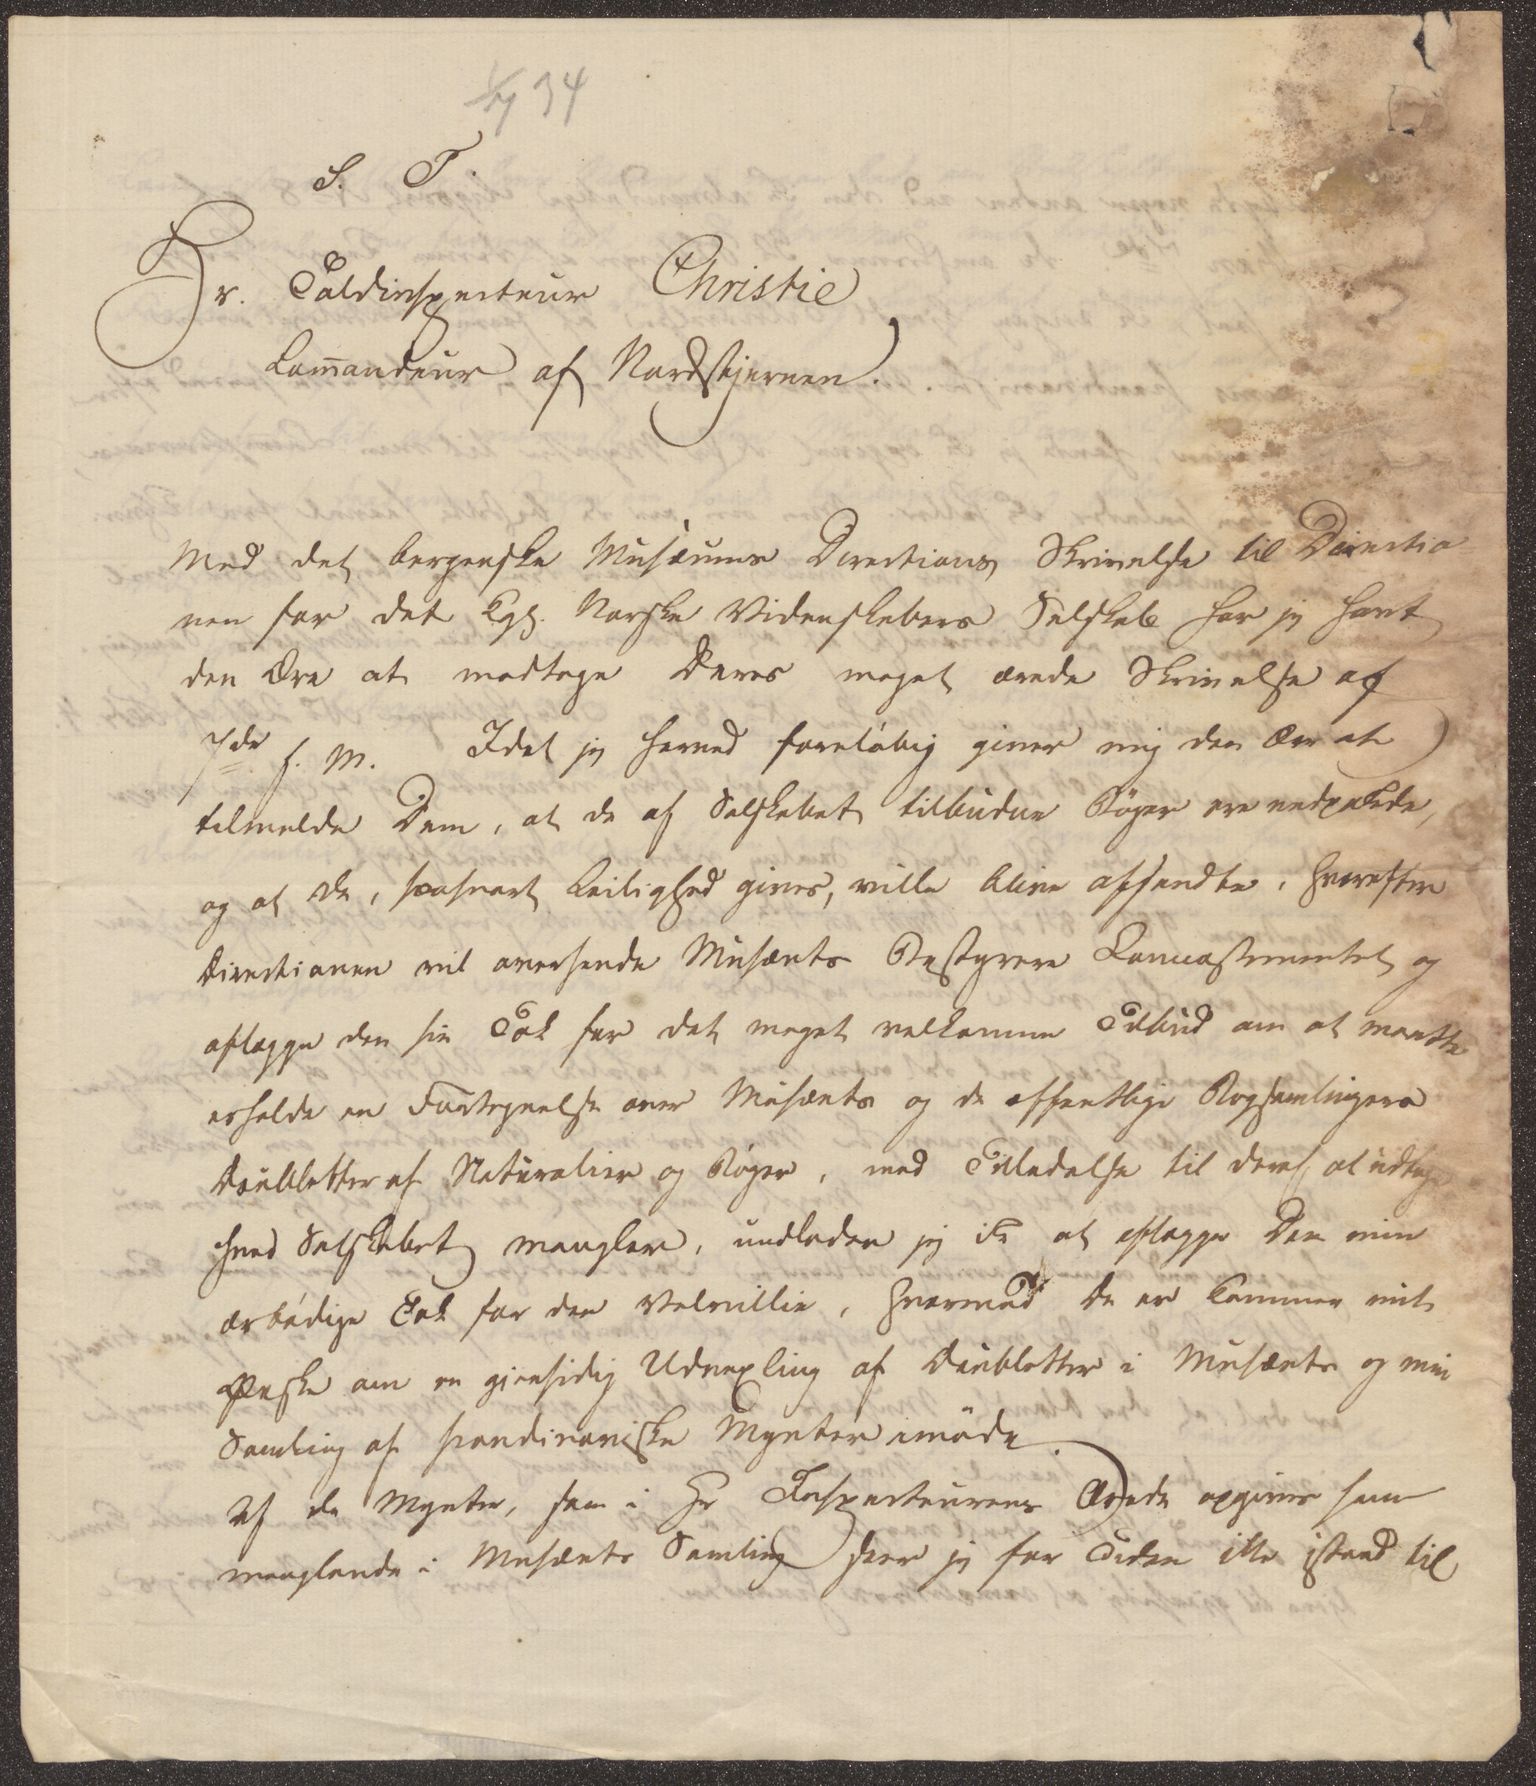 34
S. T.
Hr. Toldinspecteur Christie
Com̄andeur af Nordstjernen.
Med det bergenske Musæums Directions Skrivelse til Directio
nen for det Kgl. Norske Videnskabers Selskab har jeg havt
den Ære at modtage Deres meget ærede Skrivelse af
7de f. M. Idet jeg herved foreløbig giver mig den Ære at
tilmelde Dem, at de af Selskabet tilbudne Bøger ere nedpakkede,
og at de, saasnart Leilighed gives, ville blive afsendte, hvorefter
Directionen vil oversende Musæets Bestyrere Connossementet og
aflægge den sin Tak for det meget velkomne Tilbud om at maatte
erholde en Fortegnelse over Musæets og de offentlige Bogsamlingers
Doubletter af Naturalier og Bøger, med Tilladelse til deraf at udtage
hvad Selskabet mangler, undlader jeg ikke at aflægge Dem min
ærbødige Tak for den Velvillie, hvormed De er kommen mit
Ønske om en gjensidig Udvexling af Doubletter i Musæets og min
Samling af skandinaviske Mynter imøde.
Af de Mynter, som i Hr Inspecteurens Ærede opgives som
manglende i Musæets Samling seer jeg for Tiden ikke istand til